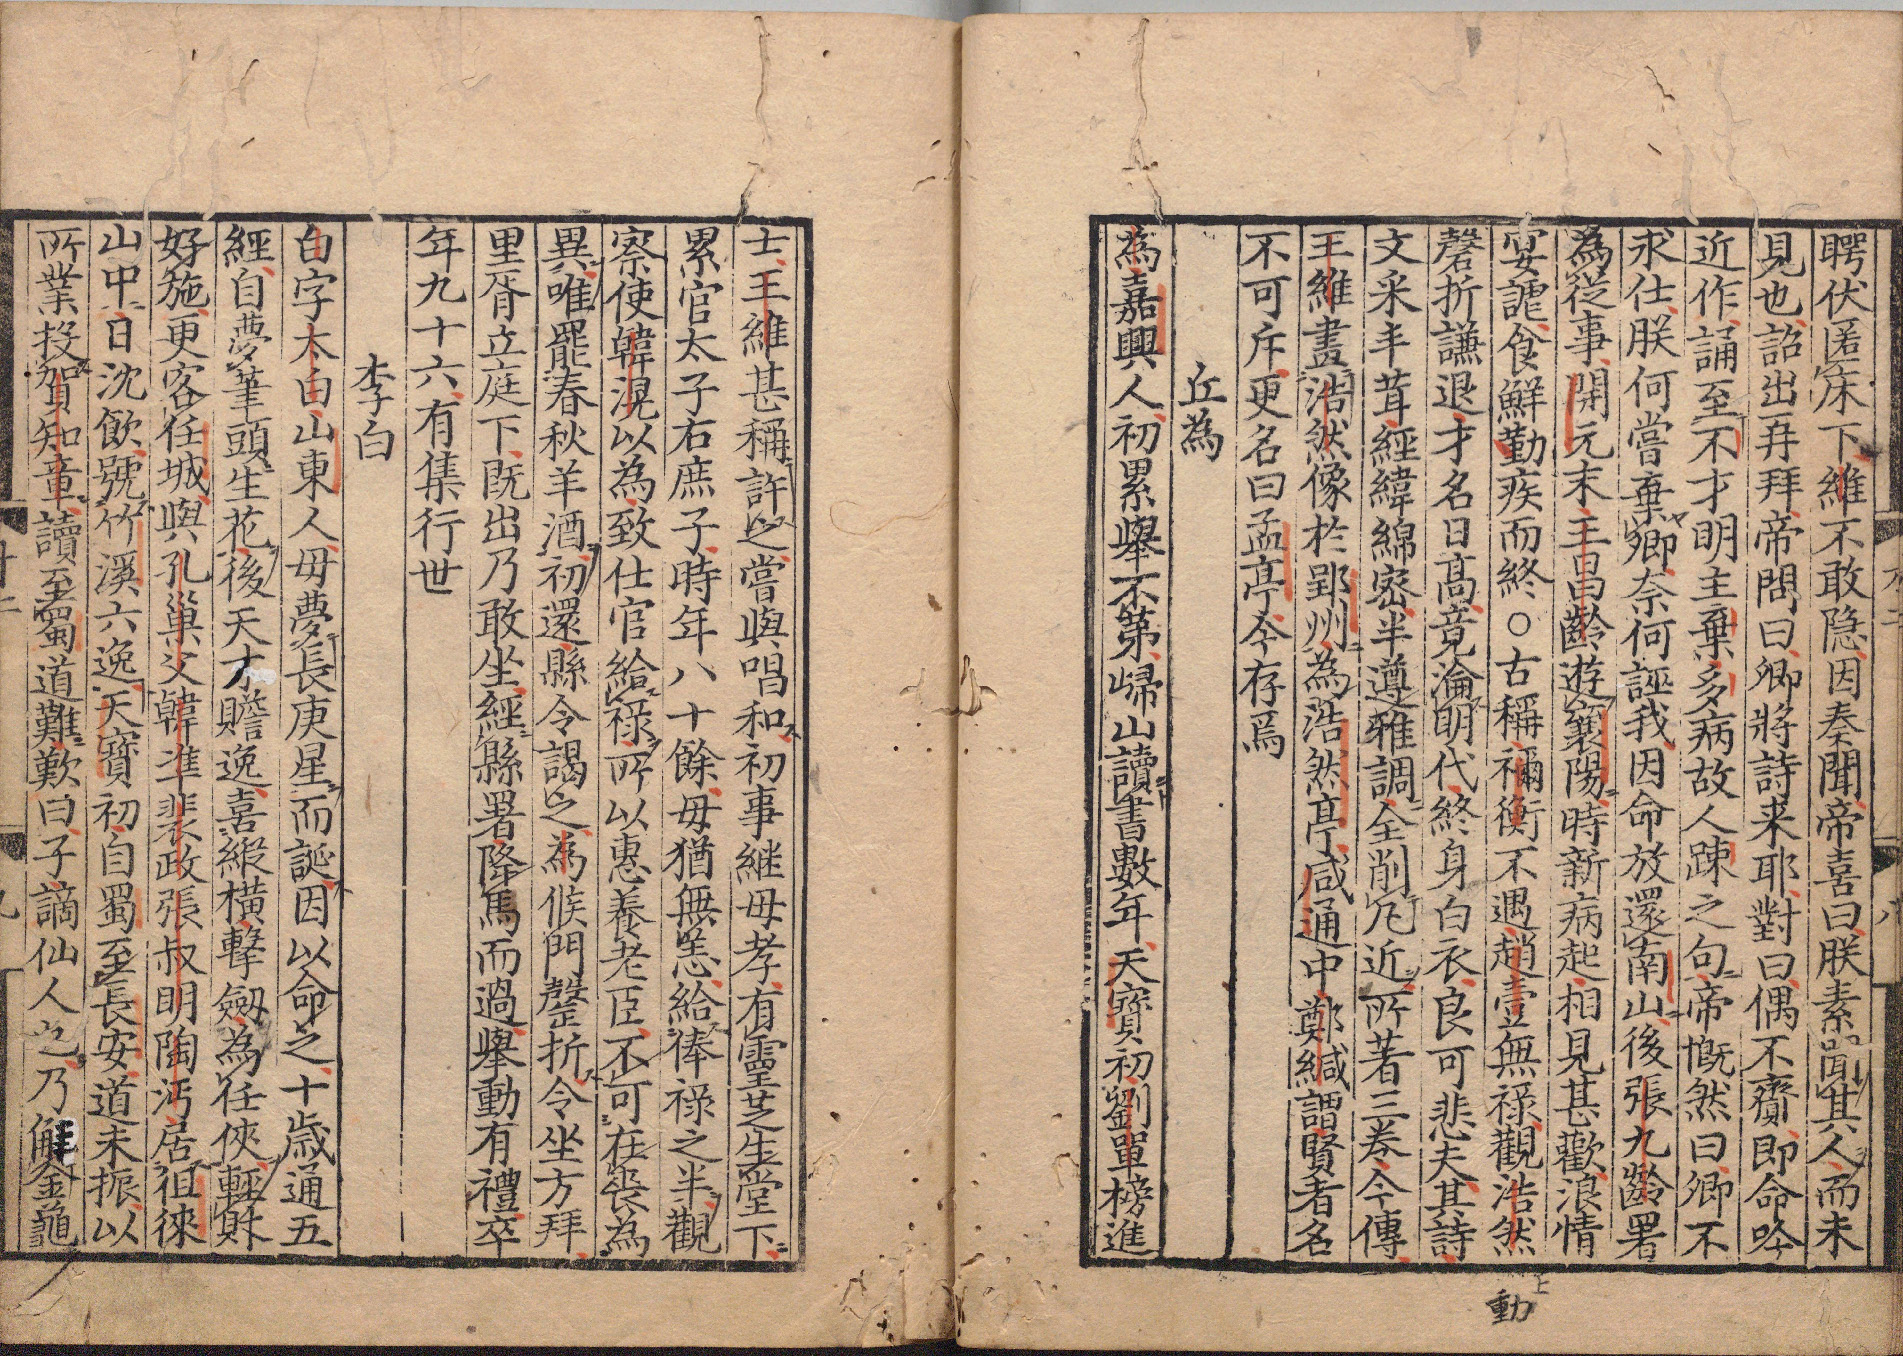 聘伏匿床下維不敢隐因奏聞帝喜曰朕素聞其人而未
見也詔出再拜帝問曰卿将詩来耶對曰偶不齎即命吟
近作誦至不才明主棄多病故人踈之句帝慨然曰卿不
求仕朕何嘗棄卿奈何誣我因命放還南山後張九齡署
為從事開元末王昌齡遊襄陽時新病起相見甚歡浪情
宴謔食鮮勤疾而終○古稱禰衡不遇趙壹無禄觀浩然
磬折謙退才名日高竟淪明代終身白衣良可悲夫其詩
文采丰茸經緯綿密半遵雅調全削凡近所著三卷今傳
王維畫浩然像於郢州為浩然亭咸通中鄭緘謂賢者名
不可斥更名曰孟亭今存焉
丘為
為嘉興人初累舉不第歸山讀書數年天寳初劉單榜進
士王維甚稱許之嘗與唱和初事継母孝有霊芝生堂下
累官太子右庶子時年八十餘母猶無恙給俸禄之半觀
察使韓滉以為致仕官給禄所以惠養老臣不可在喪為
異唯罷春秋羊酒初還縣令謁之為候門磬折令坐方拜
里胥立庭下既出乃敢坐經縣署降馬而過舉動有禮卒
年九十六有集行世
李白
白字太白山東人母夢長庚星而誕因以命之十歲通五
經自夢筆頭生花後天才贍逸喜縱横擊劔為任俠輕財
好施更客任城與孔巢父韓準裴政張叔明陶沔居徂徠
山中日沈飲號竹溪六逸天寳初自蜀至長安道未振以
所業投賀知章讀至蜀道難歎曰子謫仙人也乃解金龜
動